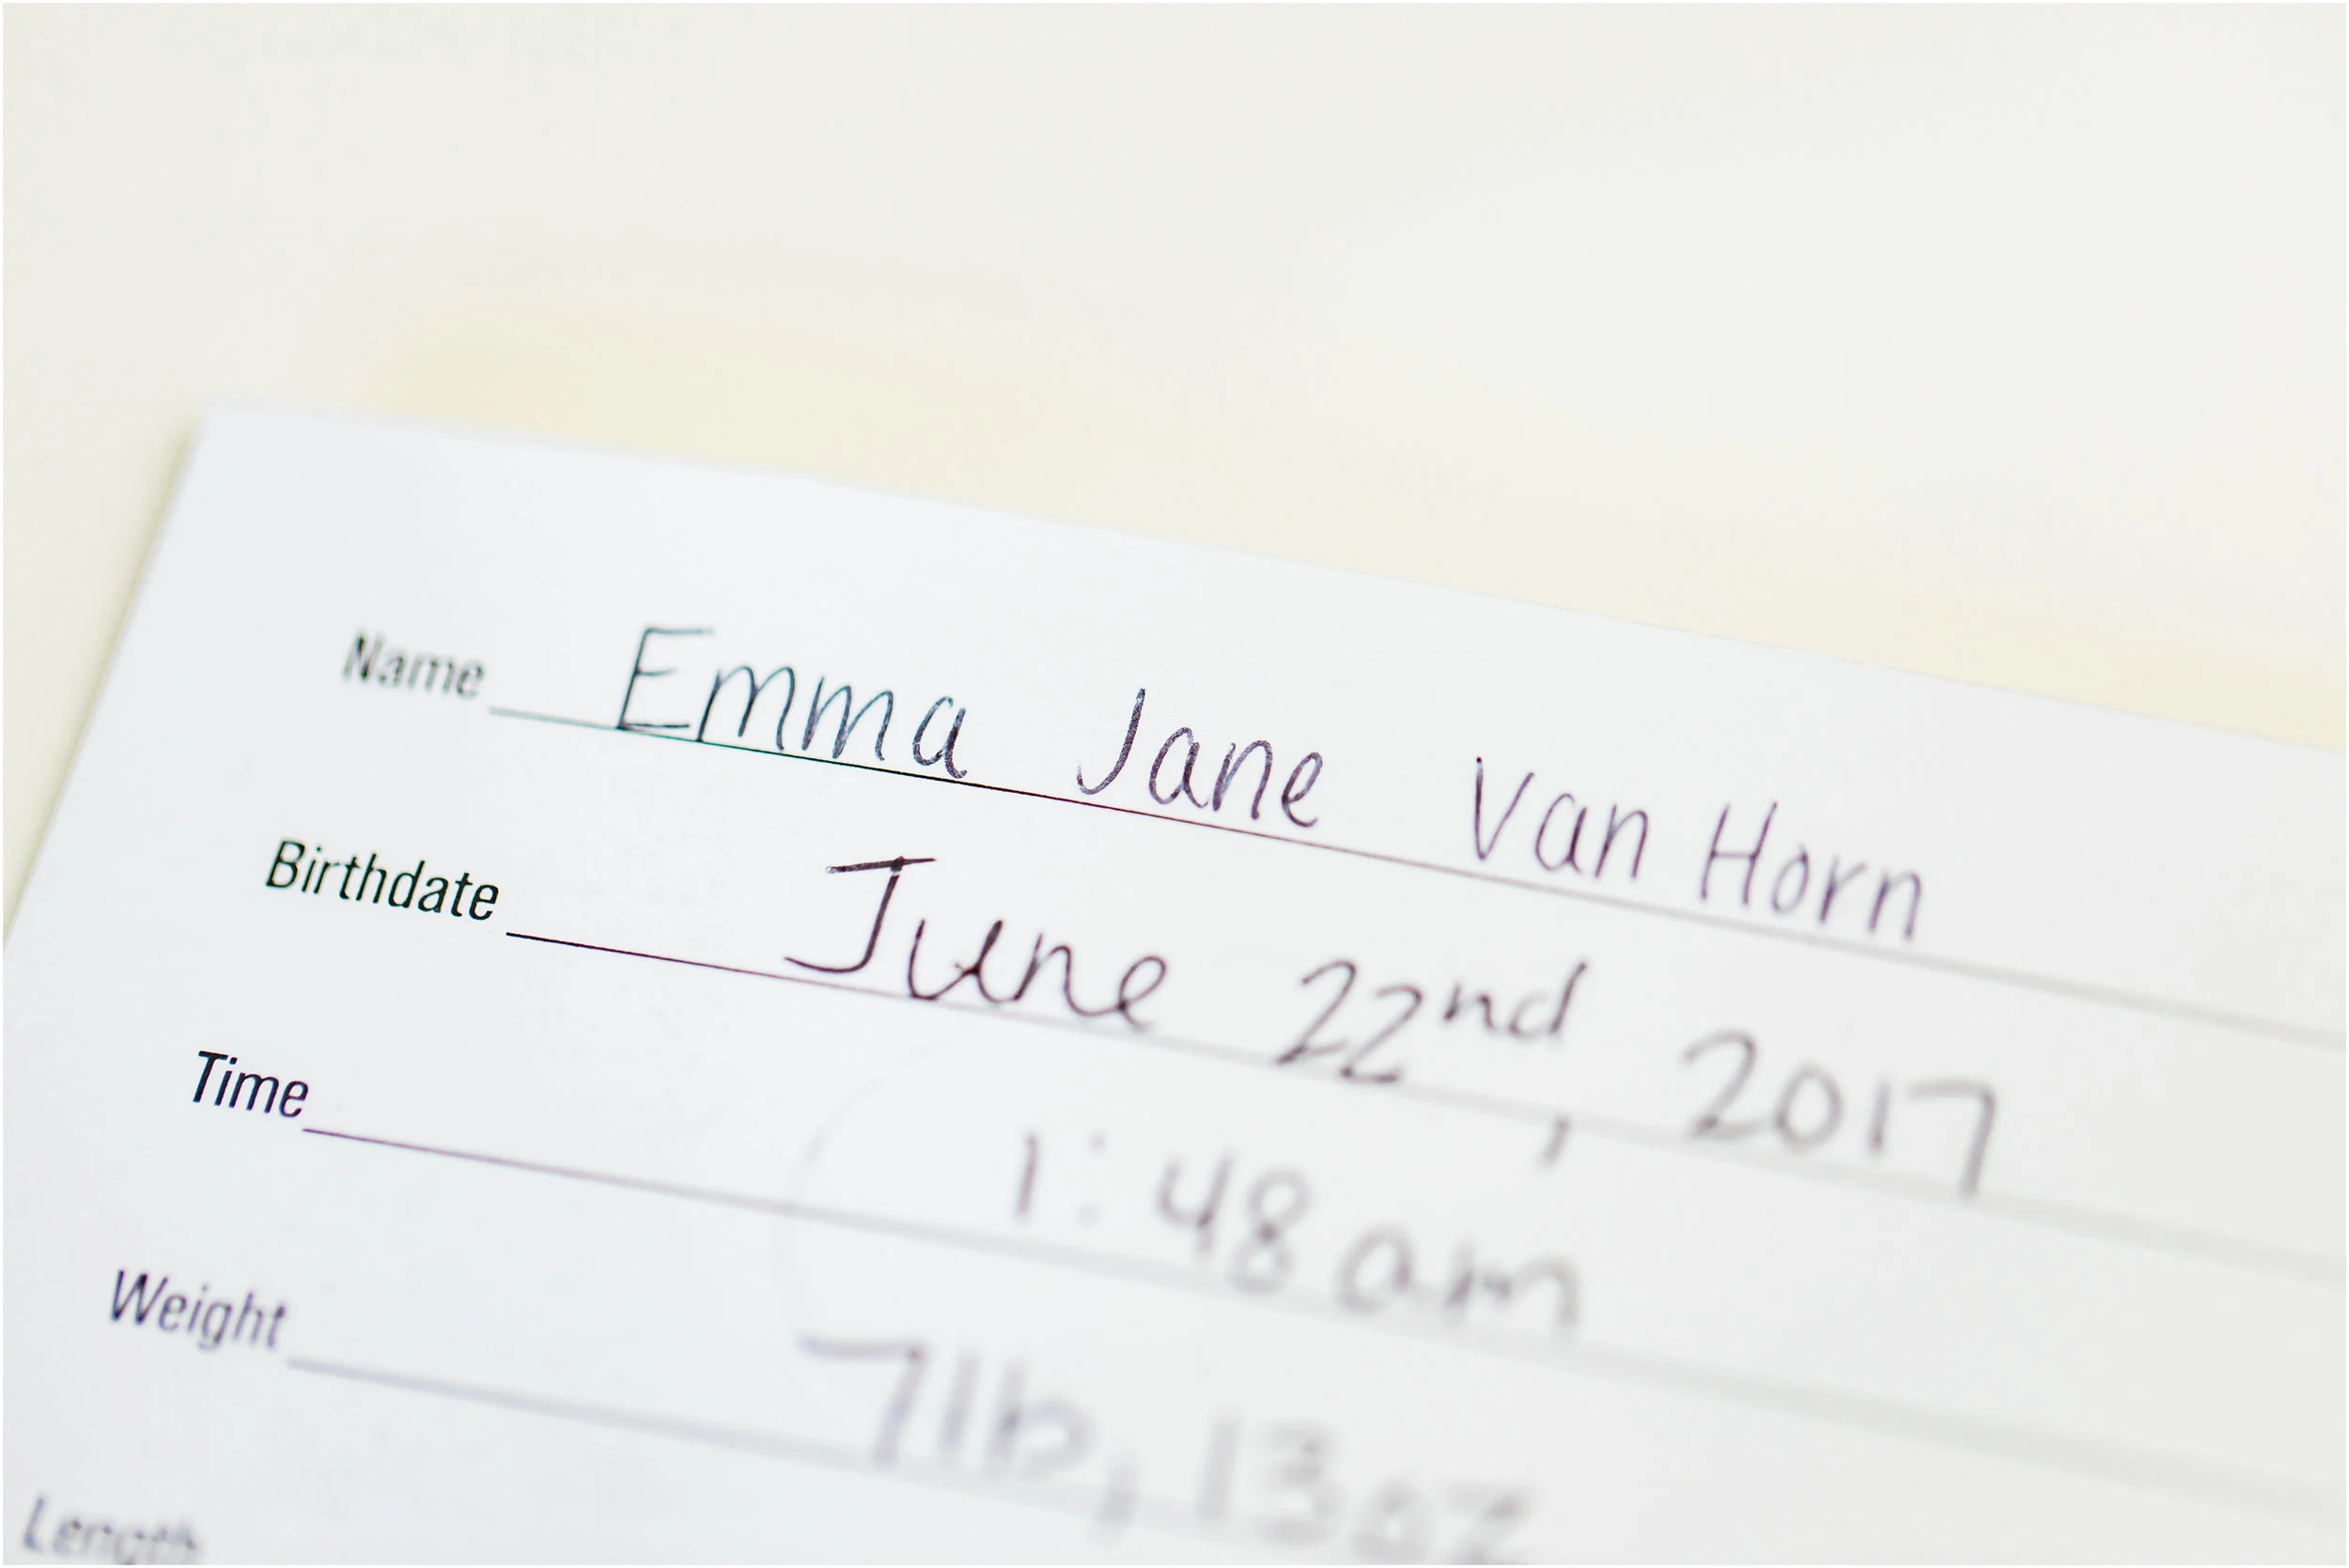 Name Emma Jane Van Horn
Birthdate June 22nd, 2017
Time 1:48 am
Weight 7lb, 13oz
Length